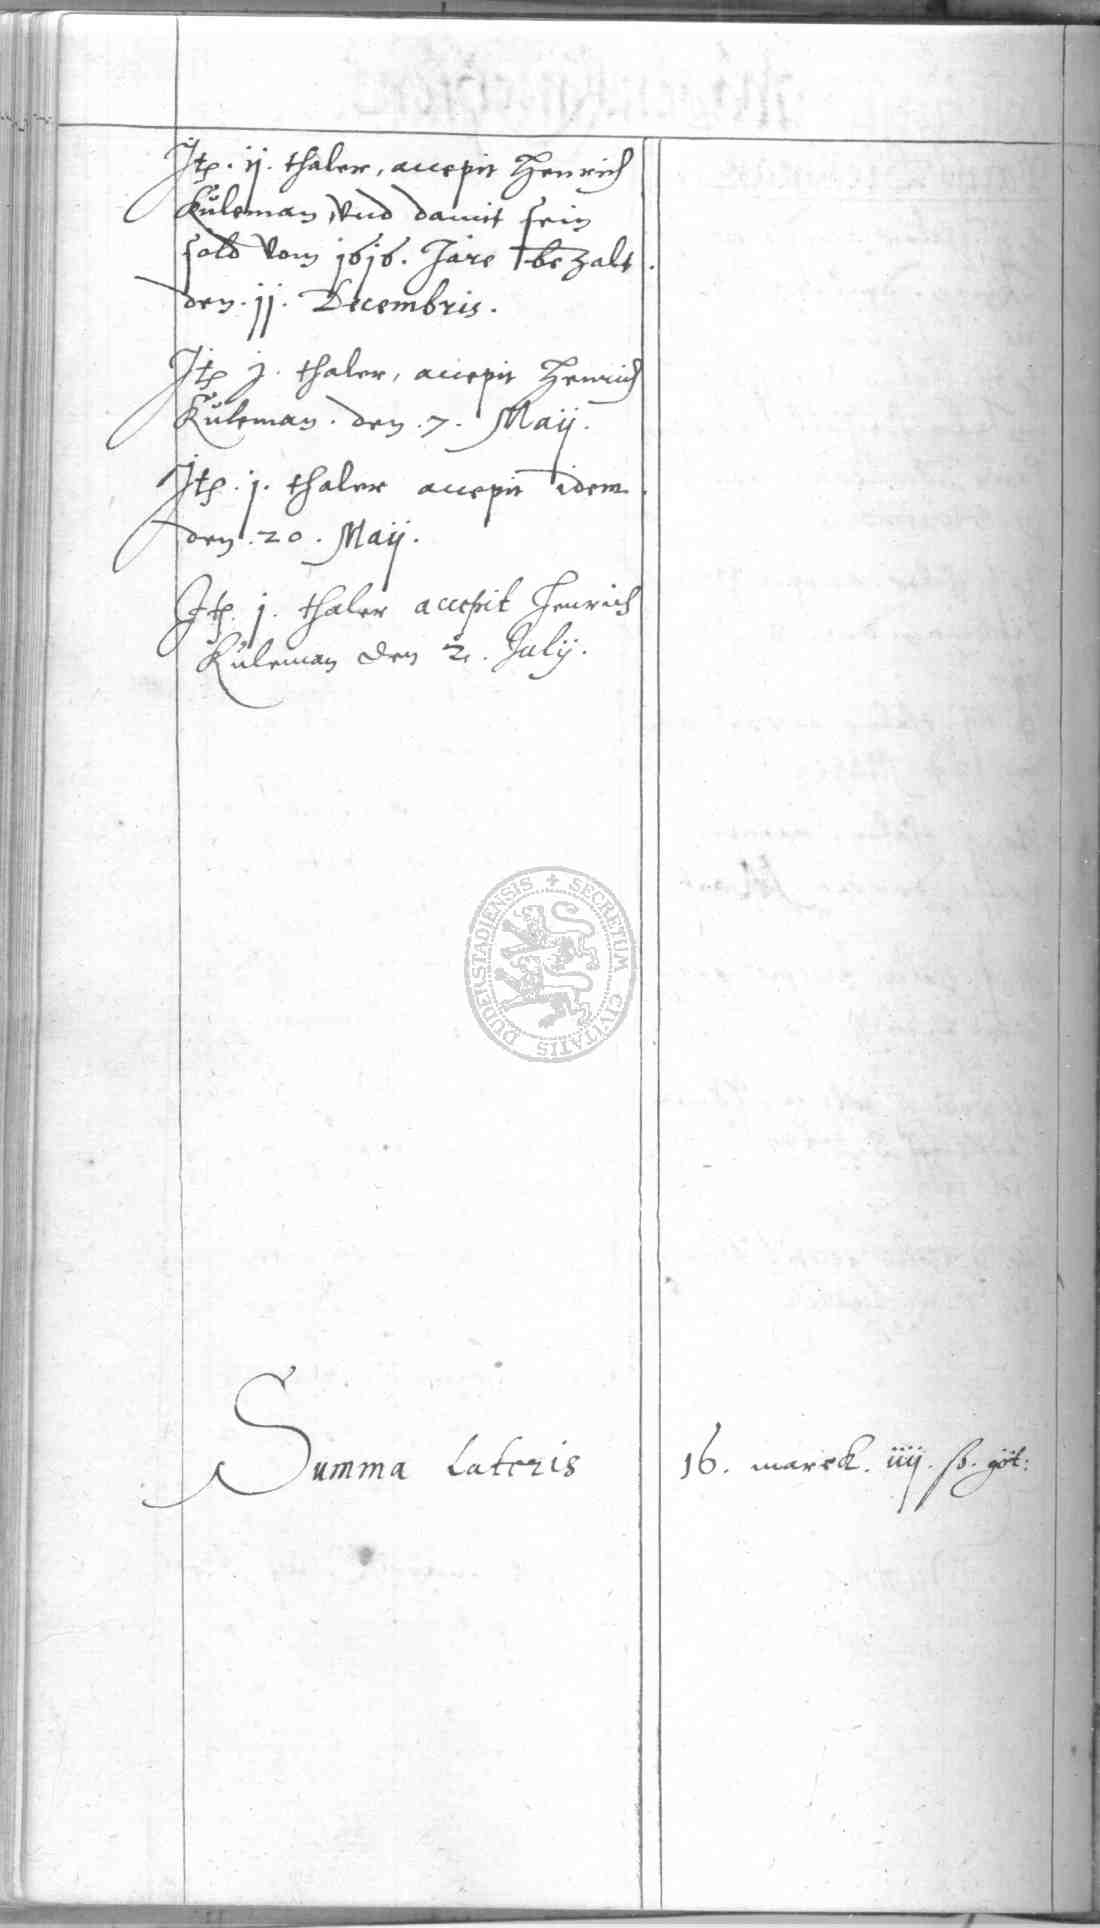 Itē. ij. thaler, accepit Henrich
Küleman vnd damit sein
sold vom 1616. Jare bezalt.
den. 11. Decembris.
Itē j. thaler, accepit Henrich
Küleman. den. 7. Maij.
Itē. j. thaler accepit idem.
den. 20. Maij.
Itē. j. thaler accepit Henrich
Küleman den 2. Julij.
SECRETUM CIVITATIS DUDERSTADIENSIS
Summa Lateris 16. marck. iiij. ß. göt: